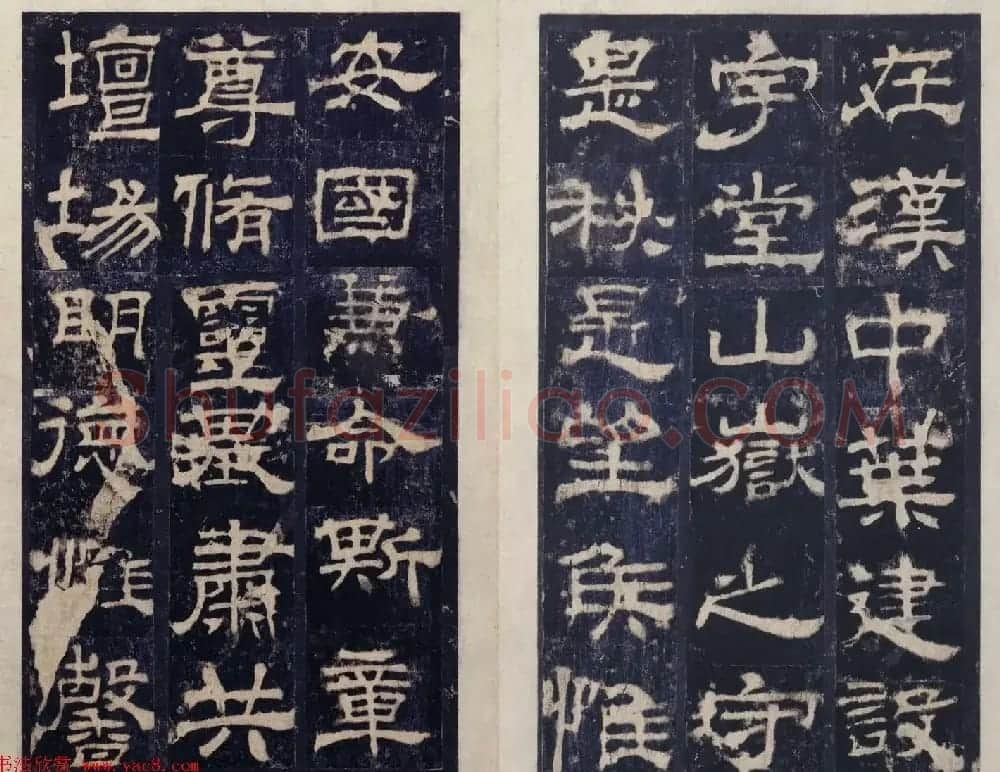 在漢中葉建設
宇堂山嶽之守
是秩是望侯惟
安國兼命斯章
尊脩靈基肅共
壇場明德惟馨
Shufaziliao.COM
书法欣赏 www.yac8.com